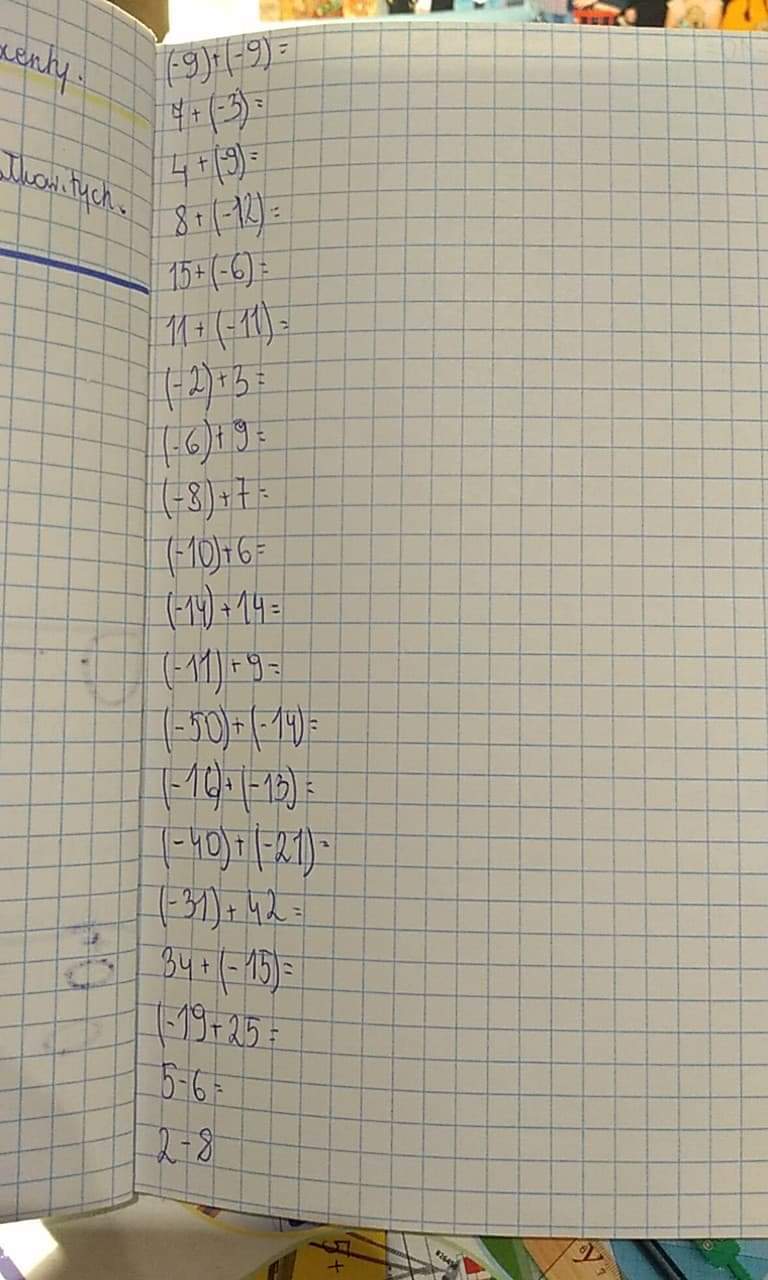 (-9)+(-9)=
7+(-3)=
4+(-9)=
8+(-12)=
15+(-6)=
11+(-11)=
(-2)+3=
(-6)+9=
(-8)+7=
(-10)+6=
(-14)+14=
(-11)+9=
(-50)+(-14)=
(-16)+(-13)=
(-40)+(-21)=
(-31)+42=
34+(-15)=
(-19+25=
5-6=
2-8